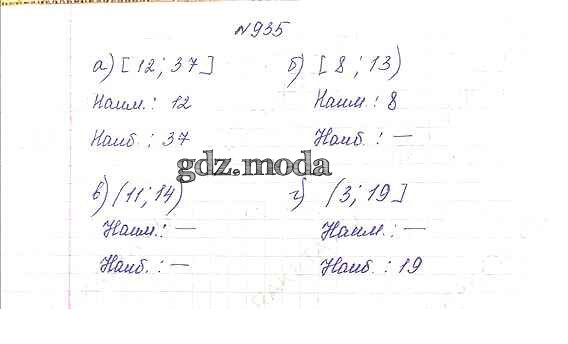 №935
а) [12; 37]
Наим.: 12
Наиб.: 37
б) [8; 13)
Наим.: 8
Наиб.: —
gdz.moda
в) (11; 14)
Наим.: —
Наиб.: —
г) (3; 19]
Наим.: —
Наиб.: 19